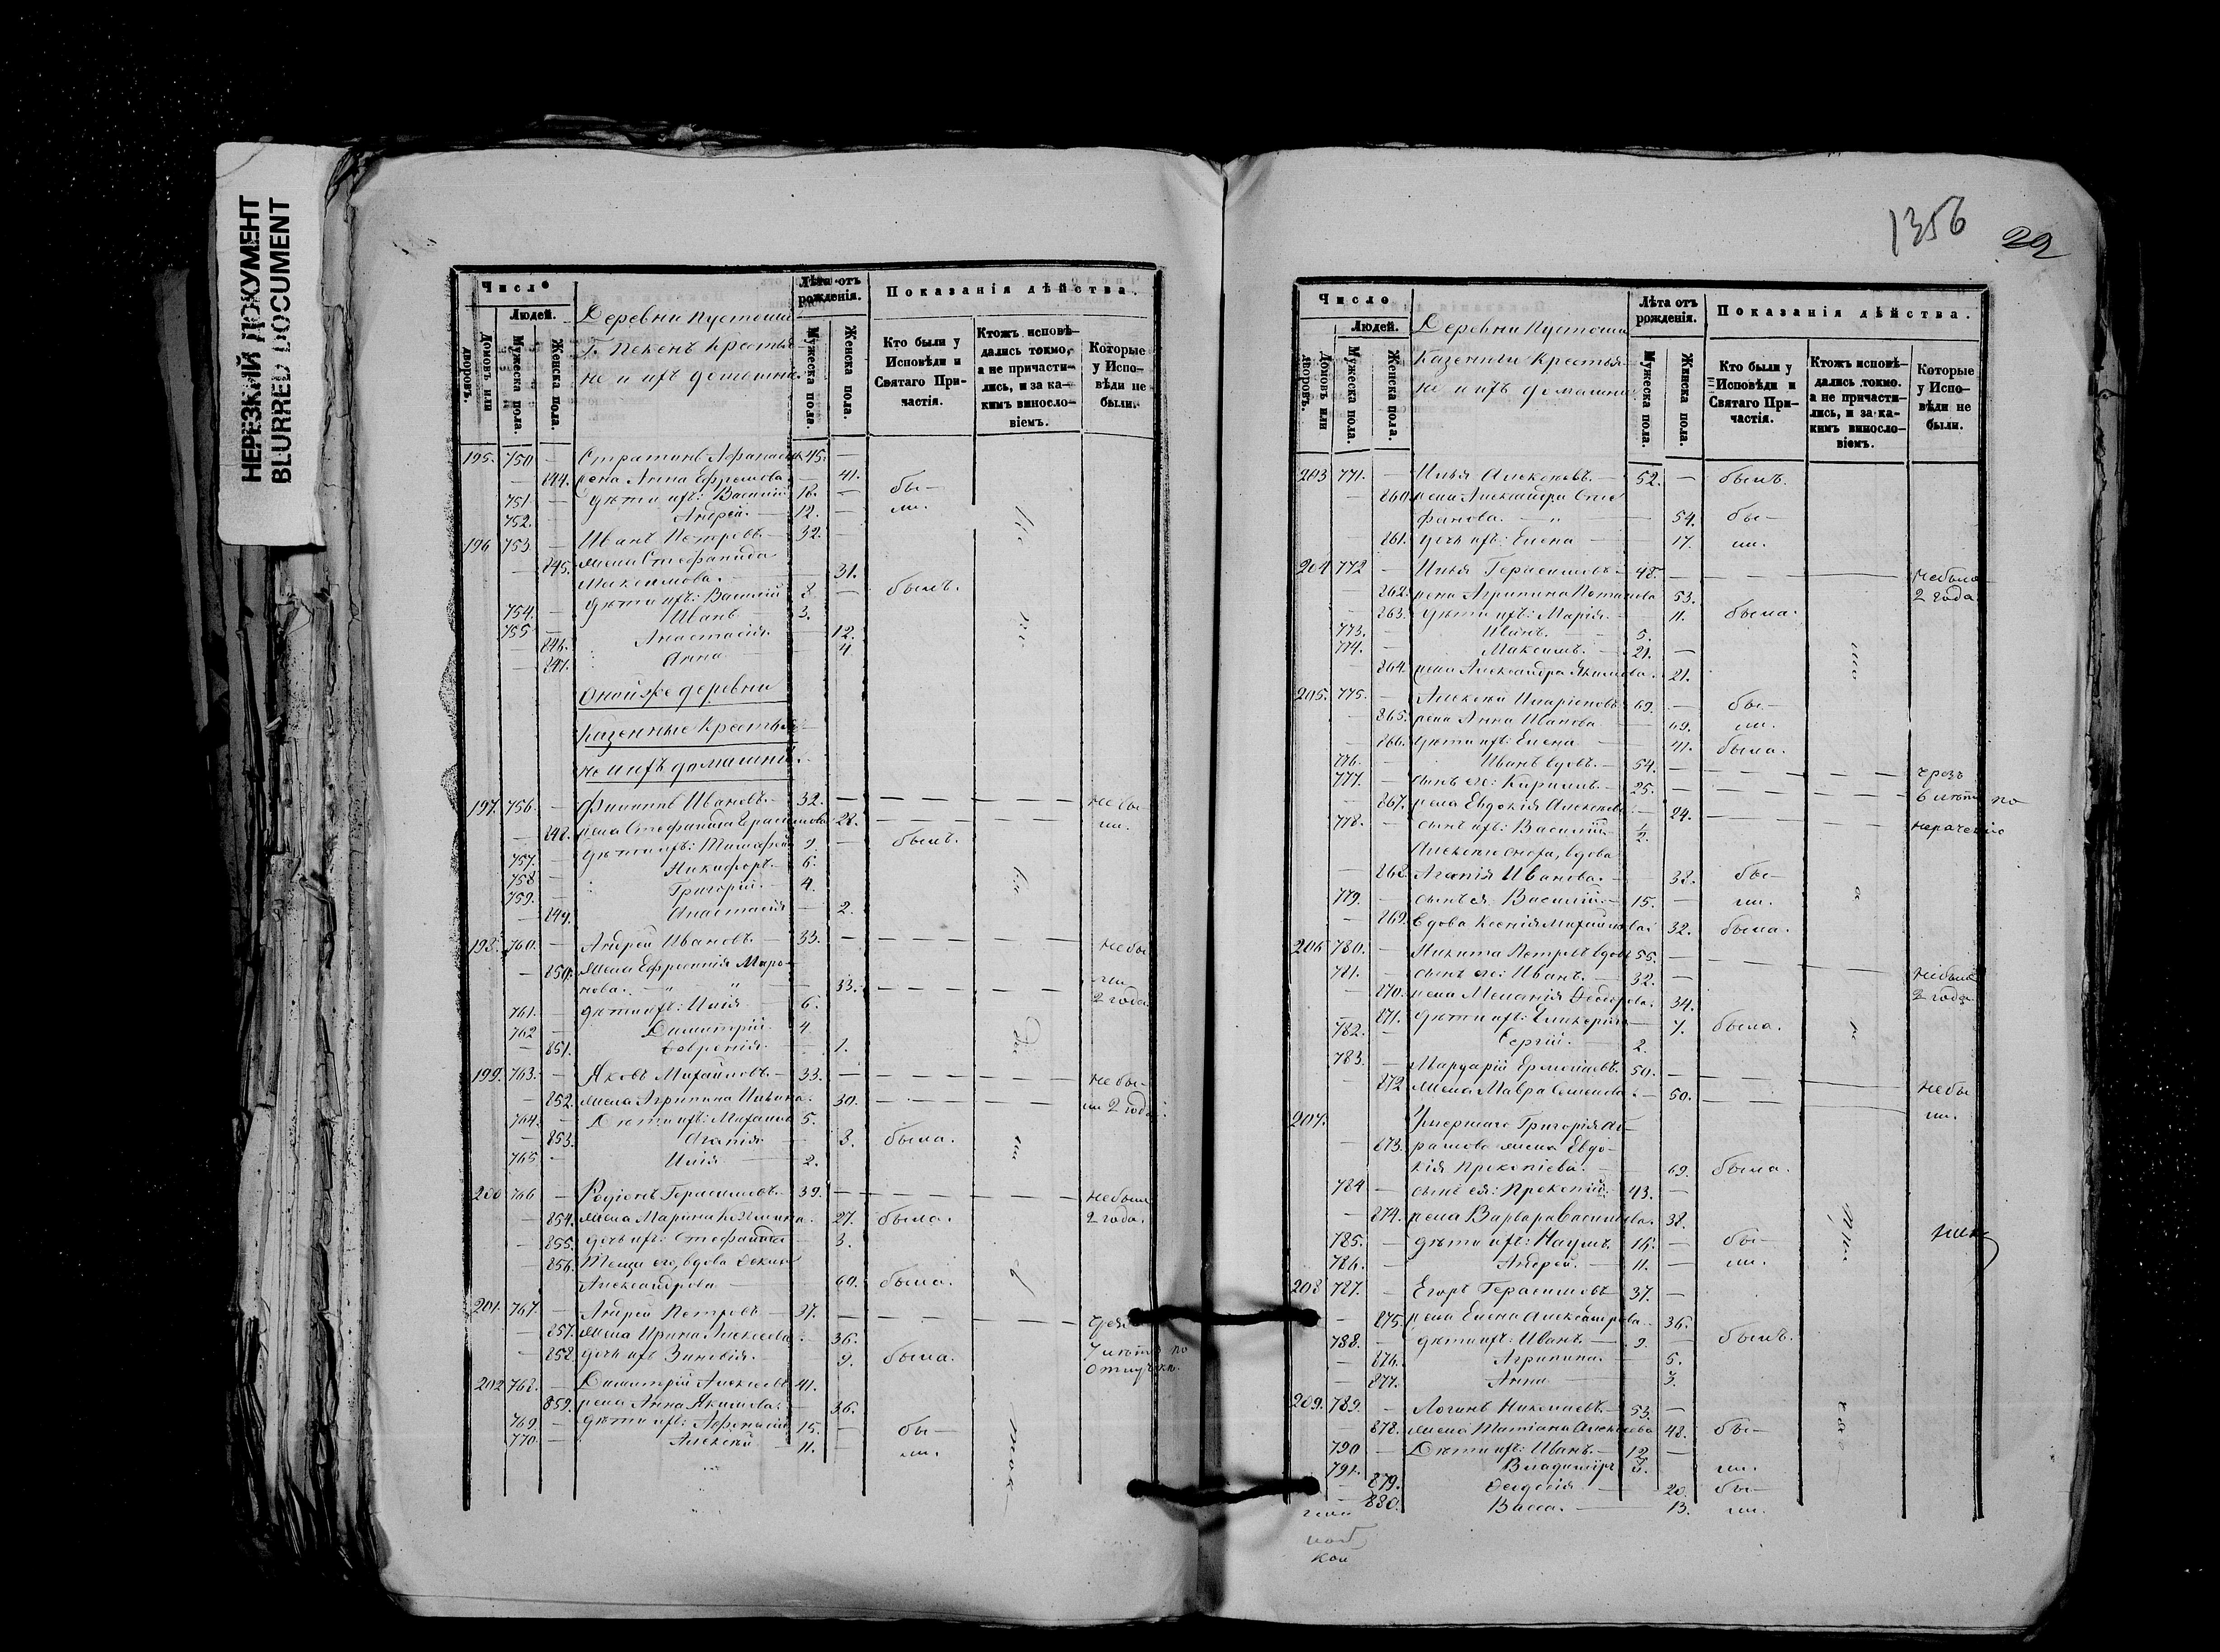 НЕРЕЗКИЙ ДОКУМЕНТ
BLURRED DOCUMENT
Число
Людей.
Домовъ или дворовъ.
Мужеска пола.
Женска пола.
Деревни Пустоши
Крестья-
не и ихъ домашніе
Лѣта отъ рожденія.
Мужеска пола.
Женска пола.
Показанія дѣйства.
Кто были у Исповѣди и Святаго При-частія.
Ктожъ исповѣ-дались токмо, а не причасти-лись, и за ка-кимъ винословіемъ.
Которые у Испо-вѣди не были.
195. 750 — Стратонъ Афанасьевъ 45. —
— 844. жена Анна Ефремова 41. бы-
751. — дѣти ихъ: Василій 18. — ли.
752. — Андрей. — 12. —
196 753. — Иванъ Петровъ — 32. —
— 845. жена Стефанида
Максимова. — 31.
754. — дѣти ихъ: Василій 8. — былъ.
755. — Иванъ 3.
— 846. Анастасія — 12.
— 847. Анна — 4.
Оной же деревни
Казенные Крестья-
не и ихъ домашніе.
197. 756. — Филиппъ Ивановъ. — 32. — не бы-
— 848. жена Стефанида Герасимова 28. — ли.
757. — дѣти ихъ: Тимофей 9. — былъ.
758. — Никифоръ. — 6.
759. — Григорій. — 4.
— 849. Анастасія — 2.
198. 760. — Андрей Ивановъ. — 33. — не бы-
— 850. жена Ефросинія Миро-
нова. — 33. — ли
761. — дѣти ихъ: Илія — 6. 2 года.
762 — Димитрій. 4.
— 851. Февронія. — 1.
199. 763. — Яковъ Михайловъ. — 33. — не бы-
— 852. жена Агрипина Ильина. 30. — ли 2 года.
764. — Дѣти ихъ: Михаилъ 5.
— 853. Агапія — 3. была.
765 — Илія — 2.
200 766 — Родіонъ Герасимовъ. — 39. — не были
— 854. жена Марина 27. была. 2 года.
— 855. дочь ихъ: Стефанида — 3.
— 856. Теща его, вдова
Александрова — 60. была.
201. 767. — Андрей Петровъ — 37. —
— 857. жена Ирина Алексеева — 36. 7 лѣтъ по
— 858. дочь ихъ Зиновія. — 9. была. отлучкѣ.
202 768. — Димитрій Алексеевъ 41.
859. жена Анна Якимова. — 36.
769. — дѣти ихъ: Афанасій 15. — бы-
770 — Алексѣй — 11. — ли.
1356
29
Число
Людей.
Домовъ или дворовъ.
Мужеска пола.
Женска пола.
Деревни Пустоши
Казенные Крестья-
не и ихъ домашніе
Лѣта отъ рожденія.
Мужеска пола.
Женска пола.
Показанія дѣйства.
Кто были у Исповѣди и Святаго При-частія.
Ктожъ исповѣ-дались токмо, а не причасти-лись, и за ка-кимъ винословіемъ.
Которые у Испо-вѣди не были.
203 771. — Илья Алексеевъ. — 52. — былъ.
— 860. жена Александра Сте-
фанова. — 54. бы-
— 861. дочь ихъ: Елена — 17. ли.
204 772 — Илья Герасимовъ — 48. — не были
— 862. жена Агрипина Потапова 53. 2 года.
— 863. дѣти ихъ: Марія. — 11. была.
773. — Иванъ. — 5.
774. — Максимъ. — 21. —
— 864. жена Александра Якимова. 21.
205. 775. — Алексѣй Иларіоновъ 69. — бы-
— 865. жена Анна Иванова — 69. ли.
— 866. дѣти ихъ: Елена — 41. была.
776. — Иванъ вдовъ. — 54. — чрезъ
777. — сынъ его: Кирилъ. — 25. — 6 лѣтъ по
— 867. жена Евдокія Алексеева — 24. нераченію
778. — сынъ ихъ: Василій ½.
Алексѣя сноха, вдова
— 868. Агапія Иванова. — 38. бы-
779. — сынъ ея: Василій. — 15. — ли.
— 869. Вдова Ксенія Михайлова 32. была.
206 780. — Никита Петровъ вдовъ 55. —
781. — сынъ его: Иванъ. — 32. — не были
— 870. жена Меланія Ѳеодорова. 34. 2 года.
— 871. дѣти ихъ: Гликерія — 7. была.
782. — Сергій. — 2.
783. — Ермолаевъ 50. —
— 872 жена Мавра Семенова. — 50. не бы-
ли.
207. Умершаго Григорія Аб-
— 873. рамова жена Евдо-
кія Прокопіева. — 69. была.
784 — сынъ ея: Прокопій. 43. —
— 874. жена Варвара Васильева. 38.
785. — дѣти ихъ: Наумъ 16. — бы-
786. — Андрей. — 11. — ли.
208 787. — Егоръ Герасимовъ 37. —
— 875. жена Елена Александрова. 36.
788. — дѣти ихъ: Иванъ. — 9. — былъ.
— 876. Агрипина. — 5.
— 877. Анна — 3.
209. 789. — Логинъ Николаевъ. — 53. —
878. жена Татіана Алексеева 48. бы-
790 — Дѣти ихъ: Иванъ. — 12. —
791. — Владиміръ 3. ли.
— 879. Ѳеодосія — 20. бы-
— 880. Васса. — 13. ли.